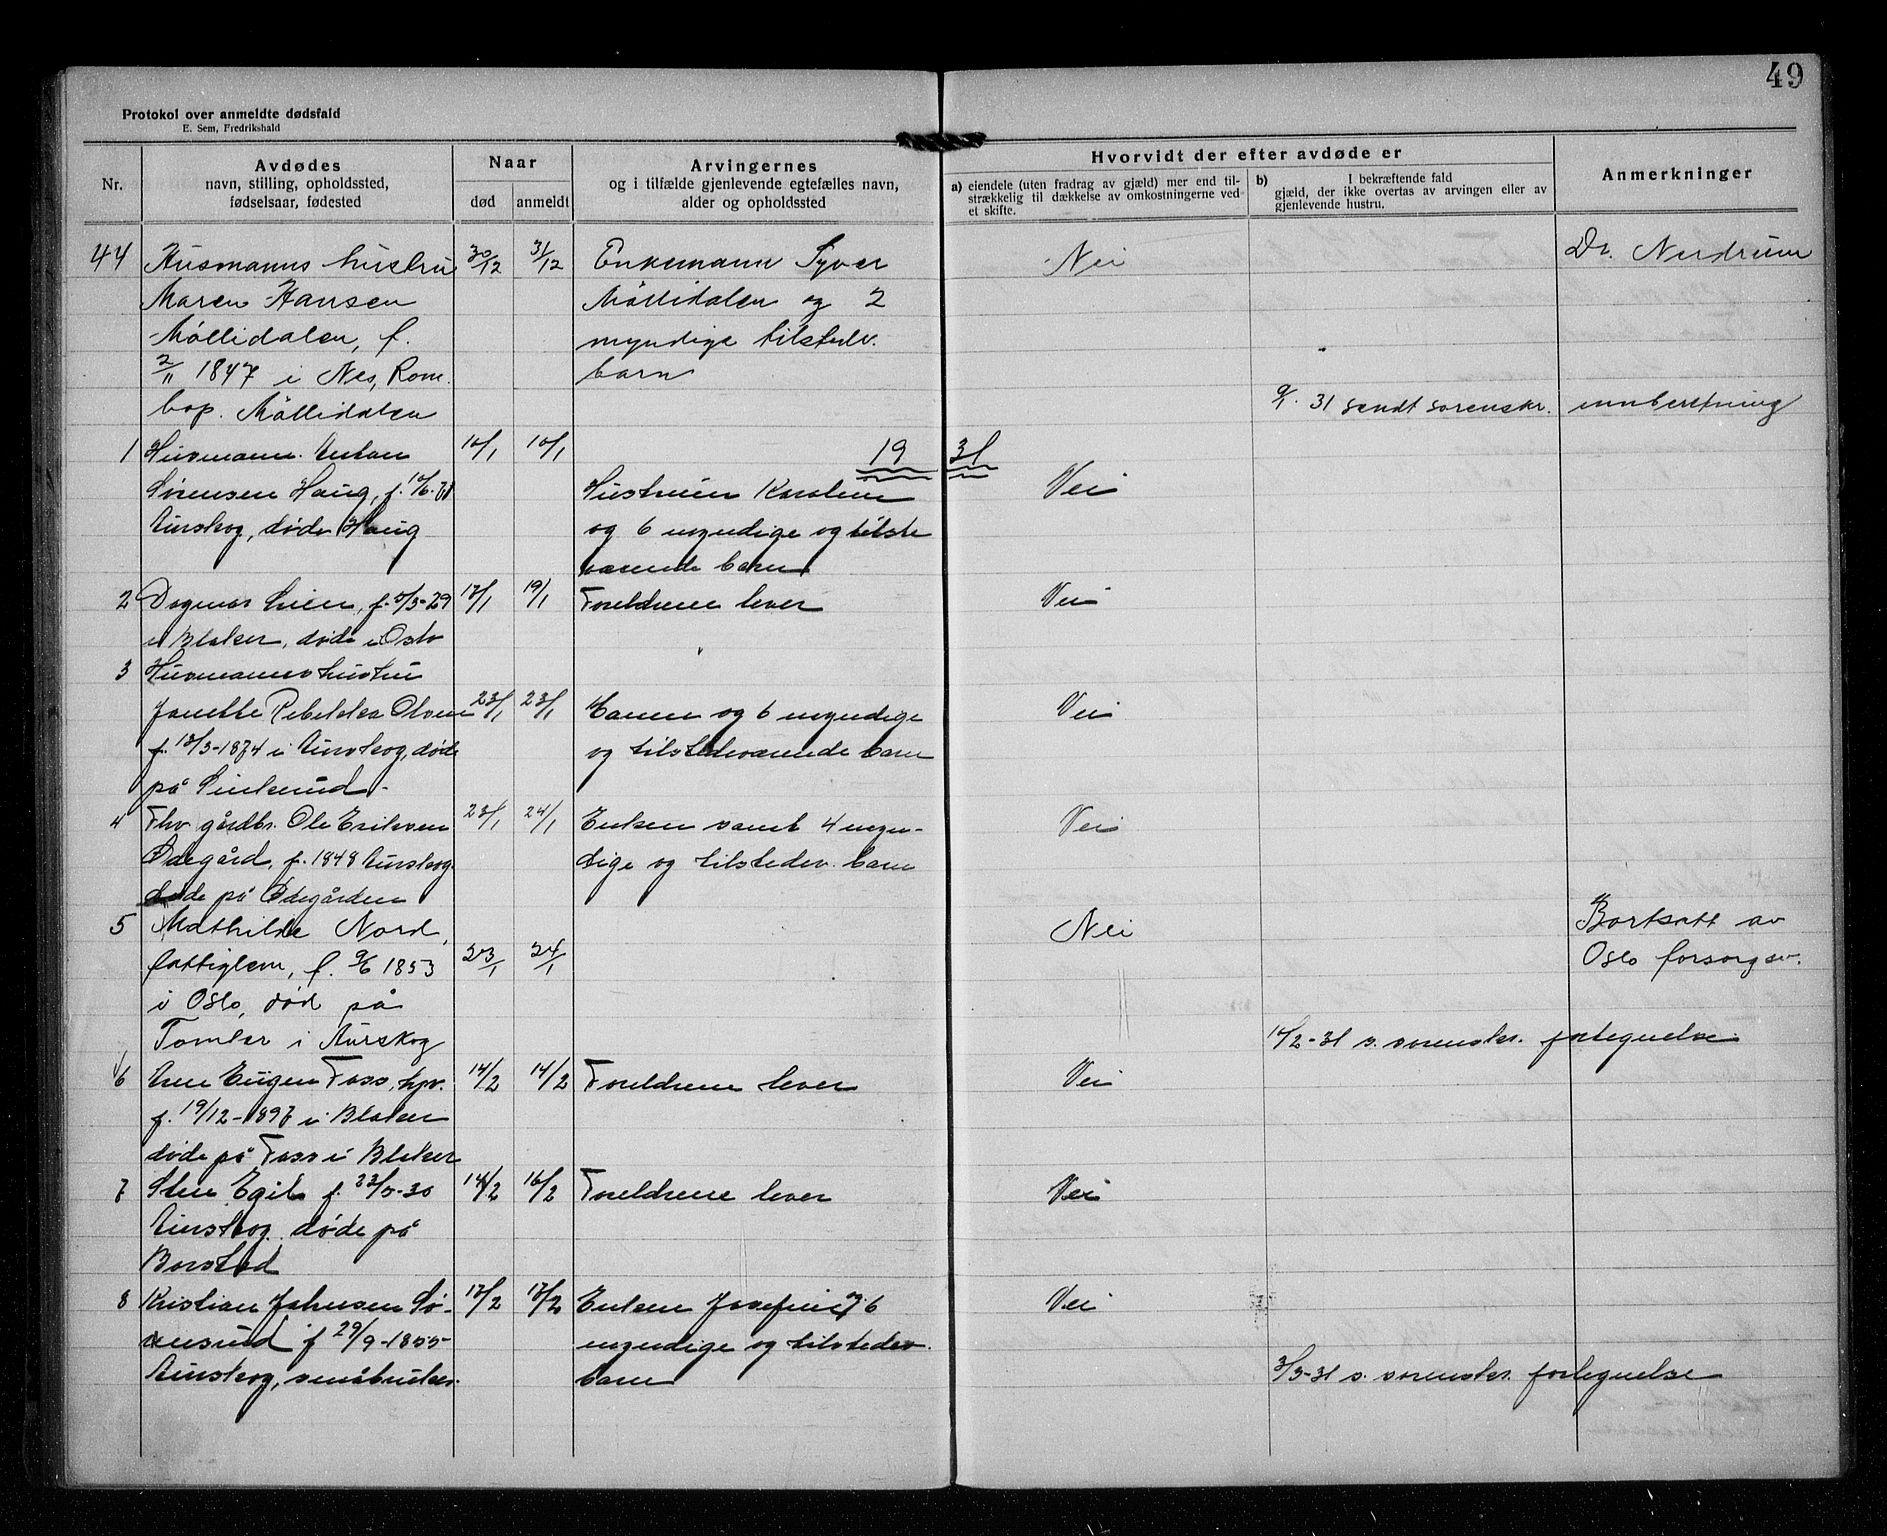 49
Protokol over anmeldte dødsfald
E. Sem, Fredrikshald
Nr.
Avdødes
navn, stilling, opholdssted,
fødselsaar, fødested
Naar
død
anmeldt
Arvingernes
og i tilfælde gjenlevende egtefælles navn,
alder og opholdssted
Hvorvidt der efter avdøde er
a) eiendele (uten fradrag av gjæld) mer end til-
strækkelig til dækkelse av omkostningerne ved
et skifte.
b) I bekræftende fald
gjæld, der ikke overtas av arvingen eller av
gjenlevende hustru.
Anmerkninger
44 Husmanns hustru 30/12 31/12 Enkemann Syver Nei Dr. Nerdrum
Maren Hansen Møllidalen og 2
Møllidalen, f. myndige tilstedv.
2/11 1847 i Nes, Rom. barn
bop. Møllidalen 9/1. 31 sendt sorenskr. innberetning
1 Husmann Anton 10/1 10/1 19 31
Sørensen Haug, f. Hustruen Karoline Nei
Aurskog, døde Haug og 6 myndige og tilste
værende barn
2 Dagmar Lien, f. 29 19/1 Foreldrene lever Nei
i Blaker, døde i Oslo
3 Husmannshustru
Janette Rebekka Olsen 23/1 23/1 Mannen og 6 myndige Nei
1874 i Aurskog, døde og tilstedeværende barn
på
4 Fhv gårdbr. Ole Eriksen 23/1 24/1 Enken samt 4 myn- Nei
Ødegård, f. 1848 Aurskog. dige og tilstedev. barn
døde på Ødegården
5 Mathilde Nord, Nei Bortsatt av
fattiglem, f. 9/6 1853 23/1 24/1 Oslo forsorgsv.
i Oslo, død på
Tomler i Aurskog 14/2-31 s. sorenskr. fortegnelse
6 Arne Eugen Foss, 14/2 14/2 Foreldrene lever Nei
f. 19/12-1897 i Blaker
døde på Foss i Blaker
7 Sten Egil f. 30 14/2 16/2 Foreldrene lever Nei
Aurskog. døde på
Borstad
8 Kristian Johnsen Sø- Enken Josefine og 6 Nei
rensrud f 29/9-1855 myndige og tilstedev.
Aurskog, småbruker. barn 3/3-31 s. sorenskr. fortegnelse